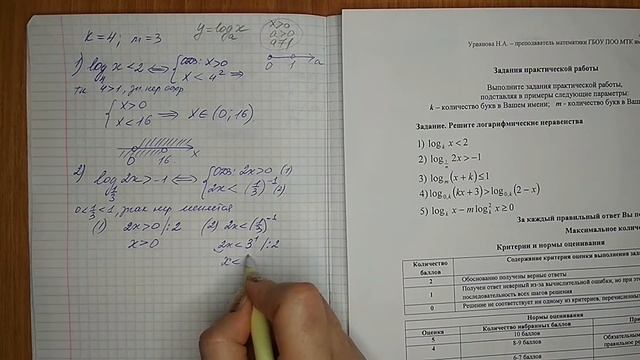 K=4; m=3
y=log_a x
x>0
a>0
a≠1
1) log_4 x<2 ⇔ { ОДЗ: x>0
x<4² ⇒
0 1 a
тк 4>1, зн нер сохр
{ x>0
x<16 ⇒ x∈(0;16)
0 16 x
2) log_{1/3} 2x>-1 ⇔ { ОДЗ: 2x>0 (1)
2x<(1/3)^{-1} (2)
0<1/3<1, знак нер. меняется
(1) 2x>0 |:2 (2) 2x<(1/3)^{-1}
x>0 2x<3¹ |:2
x<
Урванова Н.А. – преподаватель математики ГБОУ ПОО МТК им
Задания практической работы
Выполните задания практической работы,
подставляя в примеры следующие параметры:
k – количество букв в Вашем имени; m - количество букв в Ваш
Задание. Решите логарифмические неравенства
1) log_k x<2
2) log_{1/m} 2x>-1
3) log_m(x+k)≤1
4) log_{0,4}(kx+3)>log_{0,4}(2-x)
5) log_k x-m log_k² x≥0
За каждый правильный ответ Вы по
Максимальное колич
Критерии и нормы оценки
Количество баллов
Содержание критерия оценки выполнения зада
2
Обоснованно получены верные ответы
1
Получен ответ неверный из-за вычислительной ошибки, но при эт
последовательность всех шагов решения
0
Решение не соответствует ни одному из критериев, перечисленных
Нормы оценки
Оценка
Количество набранных баллов
5
10 баллов
4
8-9 баллов
6-7 баллов